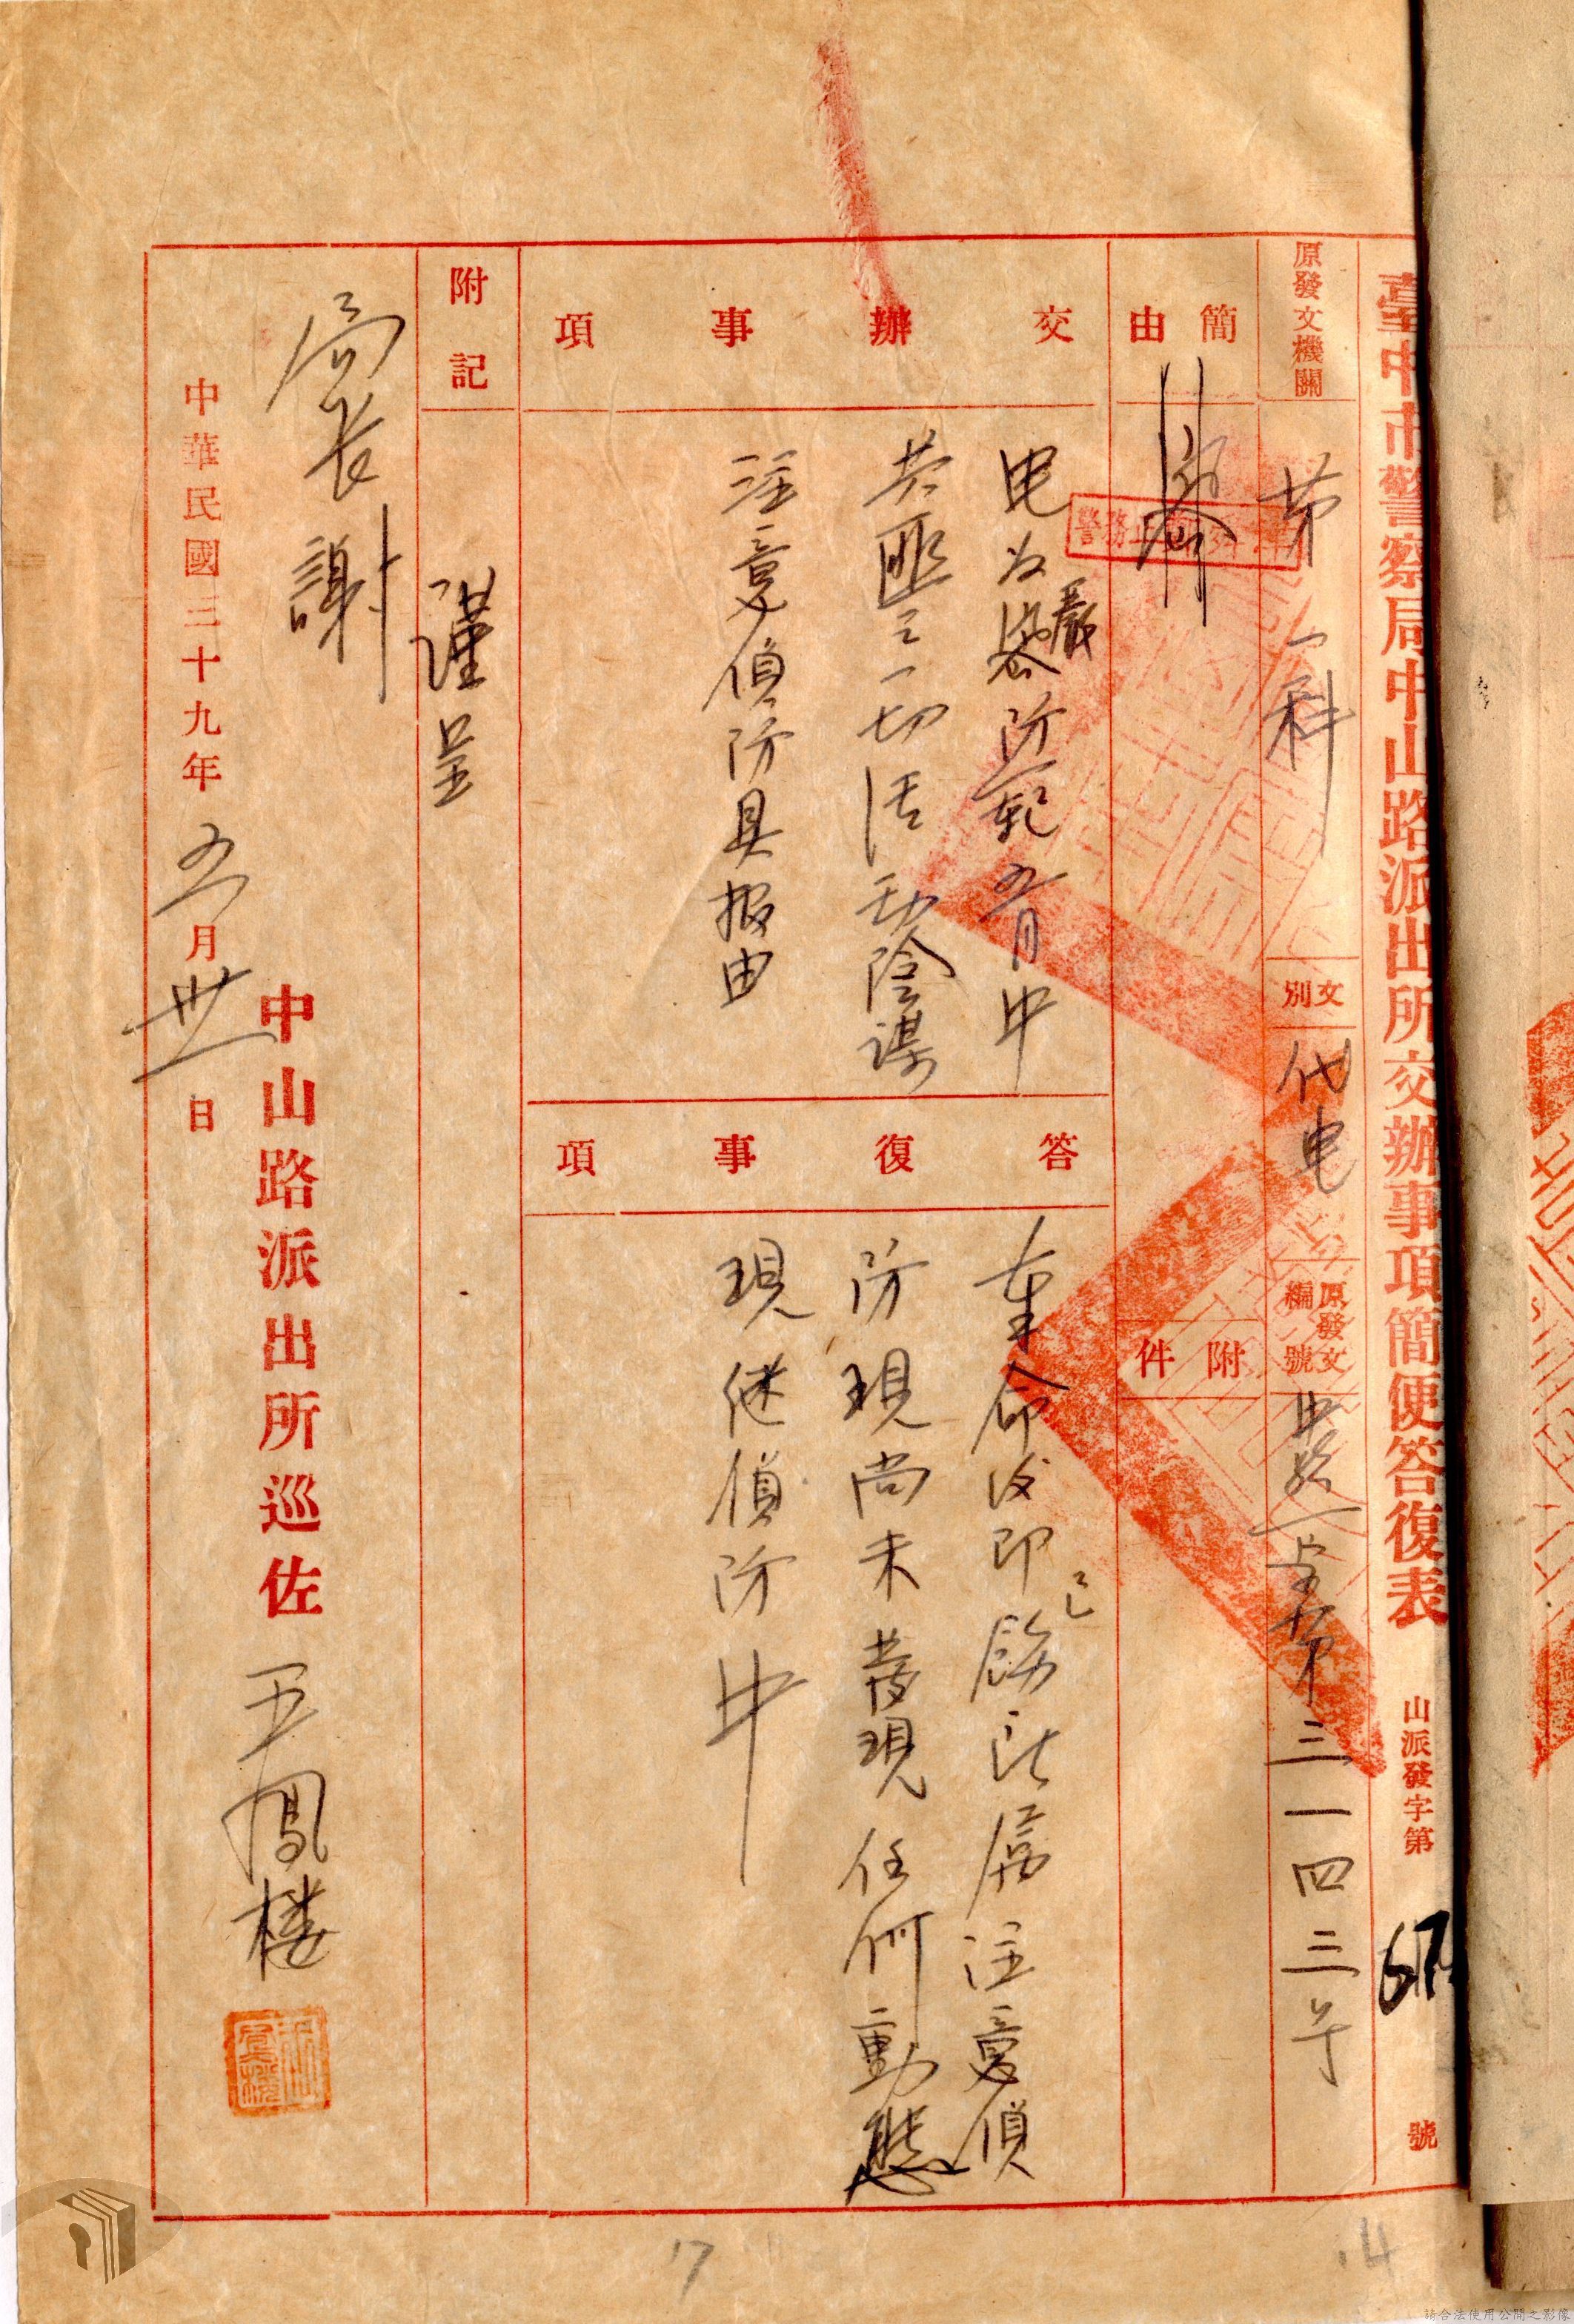 臺中市警察局中山路派出所交辦事項簡便答復表
山派發字第 號
原發文機關
第一科
文別
代電
原發文編號
第三一四三号
簡由
附件
交辦事項
電為嚴密防範五月中
共匪之一切活動陰謀
注意偵防具報由
答復事項
奉命後即已飭所屬注意偵
防現尚未發現任何動態
現继偵防中
附記
謹呈
局長謝
中山路派出所巡佐
鳳楼
中華民國三十九年五月卅一日
17
14
請合法使用公開之影像